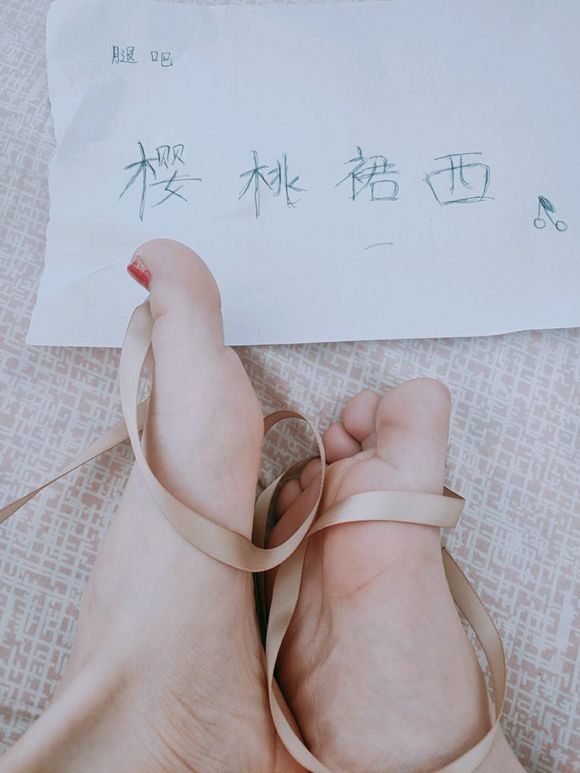 腿吧
樱桃裙西